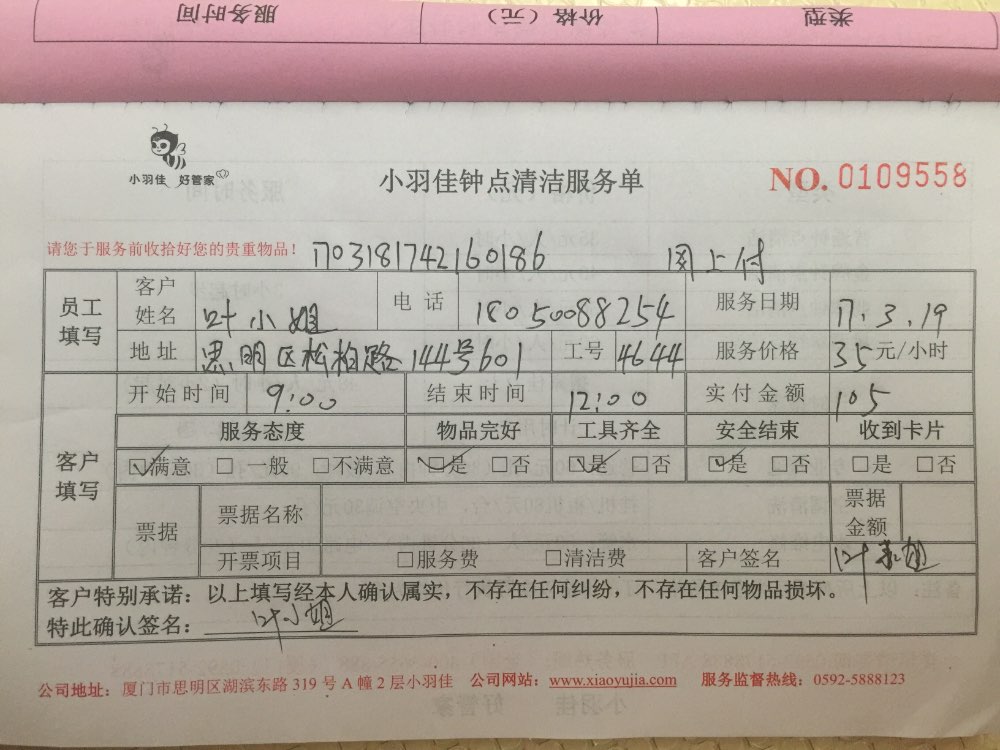 服务时间 价格（元） 类型
小羽佳 好管家
小羽佳钟点清洁服务单
NO. 0109558
请您于服务前收拾好您的贵重物品！ 1703181742160186 网上付
员工填写 客户姓名 叶小姐 电话 18050088254 服务日期 17.3.19
地址 思明区松柏路144号601 工号 4644 服务价格 35元/小时
开始时间 9:00 结束时间 12:00 实付金额 105
客户填写 服务态度 物品完好 工具齐全 安全结束 收到卡片
☑满意 □一般 □不满意 ☑是 □否 ☑是 □否 ☑是 □否 □是 □否
票据 票据名称 票据金额
开票项目 □服务费 □清洁费 客户签名 叶小姐
客户特别承诺：以上填写经本人确认属实，不存在任何纠纷，不存在任何物品损坏。
特此确认签名：叶小姐
公司地址：厦门市思明区湖滨东路319号A幢2层小羽佳 公司网站：www.xiaoyujia.com 服务监督热线：0592-5888123